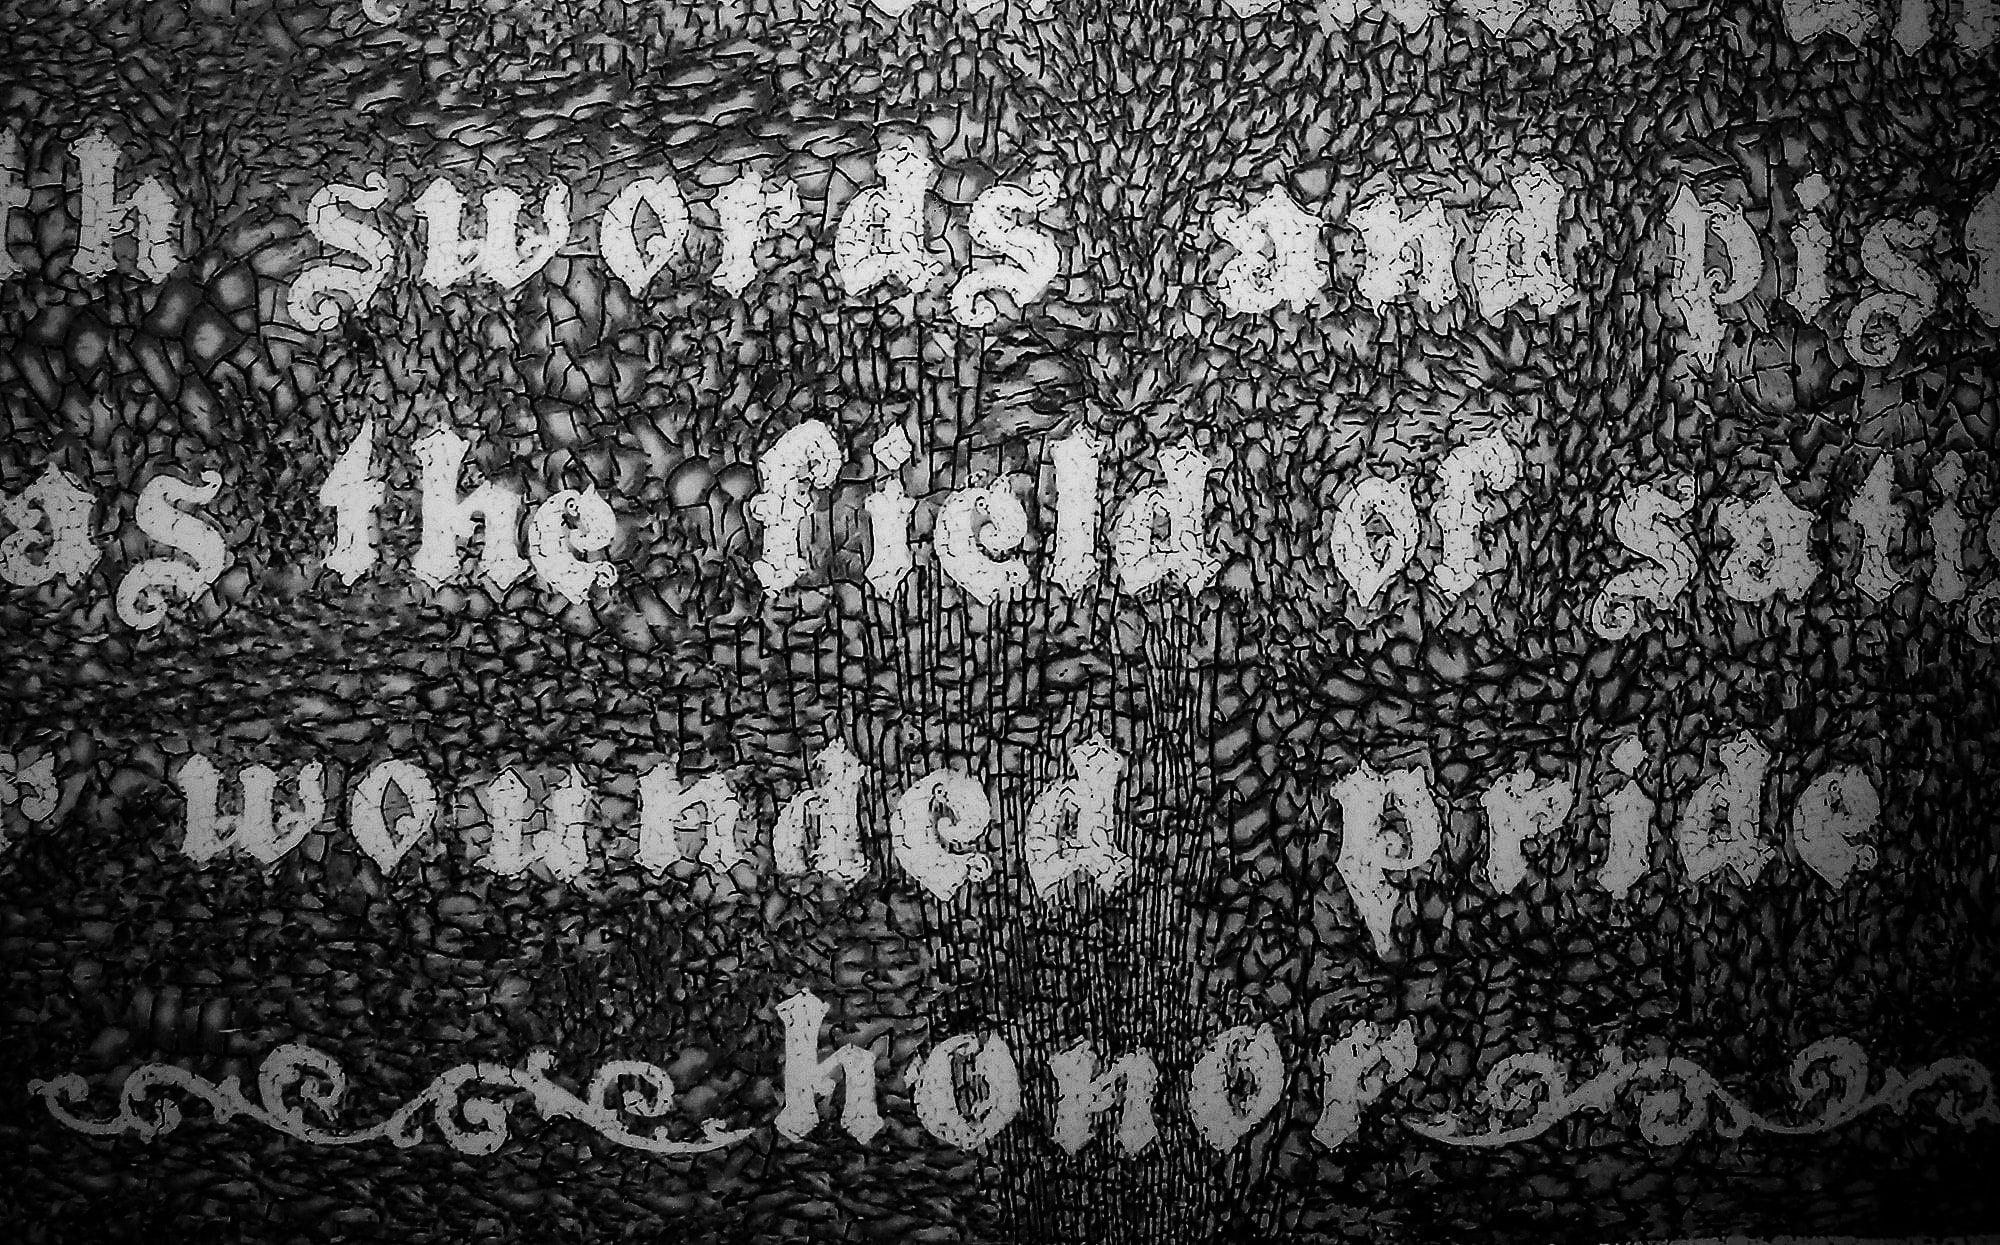 swords and
as the field of
wounded pride
honor